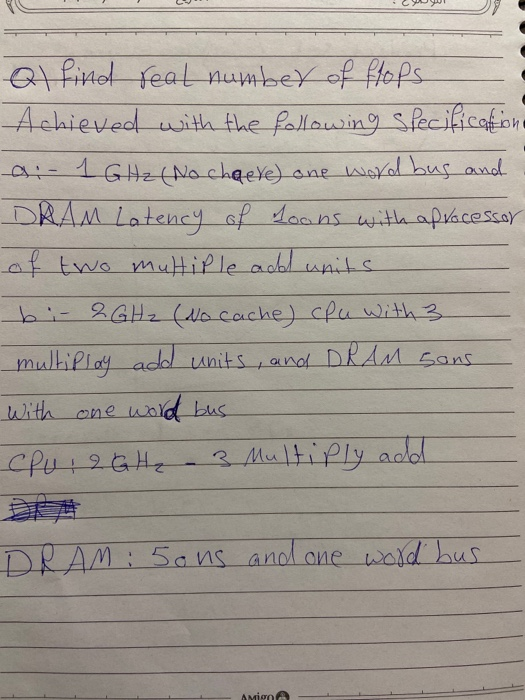 Q\ find real number of flops
Achieved with the following specification
a:- 1 GHz (No chaeve) one word bus and
DRAM Latency of 100ns with aprocessor
of two multiple add units
b:- 2GHz (No cache) cpu with 3
multiplay add units, and DRAM 50ns
with one word bus
CPU: 2GHz - 3 Multiply add
DRAM: 50ns and one word bus
AMigo